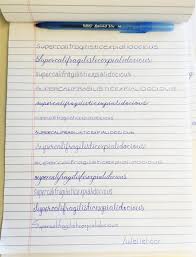 Supercalifragilisticexpialidocious
Supercalifragilisticexpialidocious
Supercalifragilisticexpialidocious
SUPERCALIFRAGILISTICEXPIALIDOCIOUS
supercalifragilisticexpialidocious
supercalifragilisticexpialidocious
SUPERCALIFRAGILISTICEXPIALIDOCIOUS
Supercalifragilisticexpialidocious
supercalifragilisticexpialidocious
supercalifragilisticexpialidocious
Supercalifragilisticexpialidocious
Supercalifragilisticexpialidocious